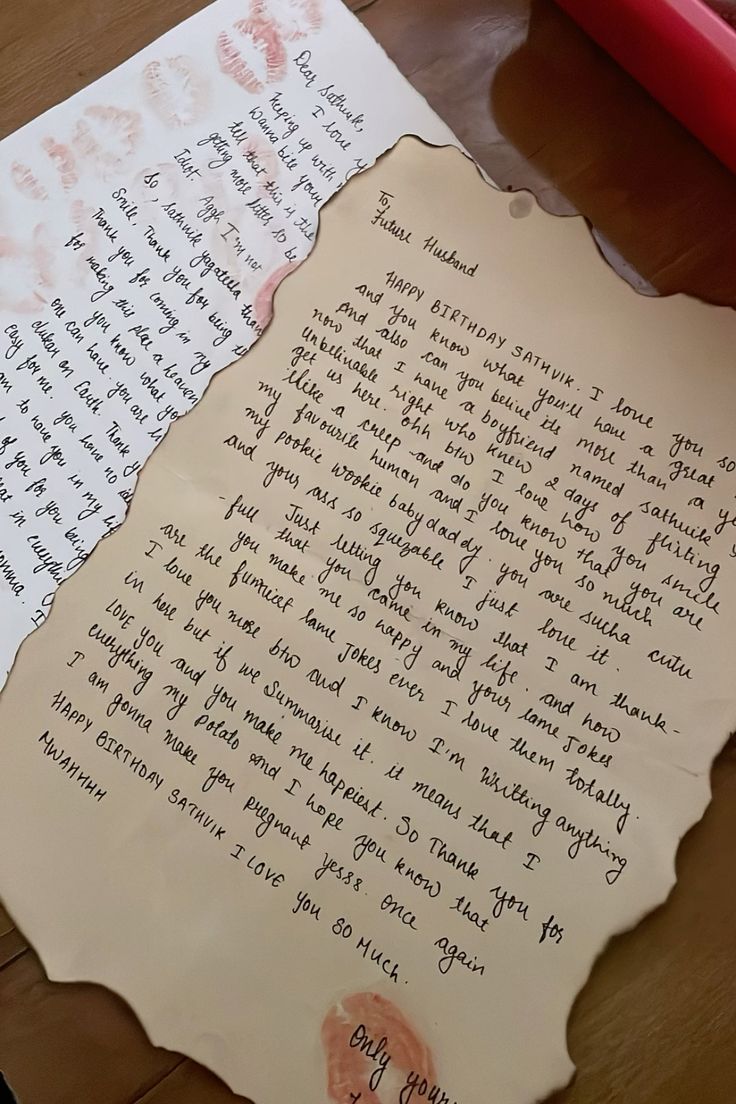 Dear Sathvik,
I love y
Keeping up with
Wanna bite your
tell that this is the
getting more letters so be
Idiot. Aggh I'm not
So, Sathvik Yagateela than
Smile, Thank you for being th
Thank you for coming in my
for making this place a heaven
you know what you
one can have. you are l
on Earth. Thank y
easy for me. you have no
am to have you in my li
of you for you being
at in everythin
omma. I
To,
Future Husband
HAPPY BIRTHDAY SATHVIK. I love you so
and you know what you'll have a great
And also can you belive its more than a ye
now that I have a boyfriend named Sathvik
Unbelivable right who knew 2 days of flirting
get us here. Ohh btw I love how you smile
like a creep and do you know that you are
my favourite human and I love you so much
my pookie wookie babydaddy. you are sucha cutu
and your ass so squezable I just love it.
Just letting you know that I am thank-
-full that you came in my life. and how
you make me so happy and your lame jokes
are the funniest lame jokes ever I love them totally.
I love you more btw and I know I'm writting anything
in here but if we summarise it. it means that I
LOVE you and you make me happiest. So Thank you for
everything my potato and I hope you know that
I am gonna make you pregnant yesss. Once again
HAPPY BIRTHDAY SATHVIK I LOVE YOU SO MUCH.
MWAHHHH
Only your